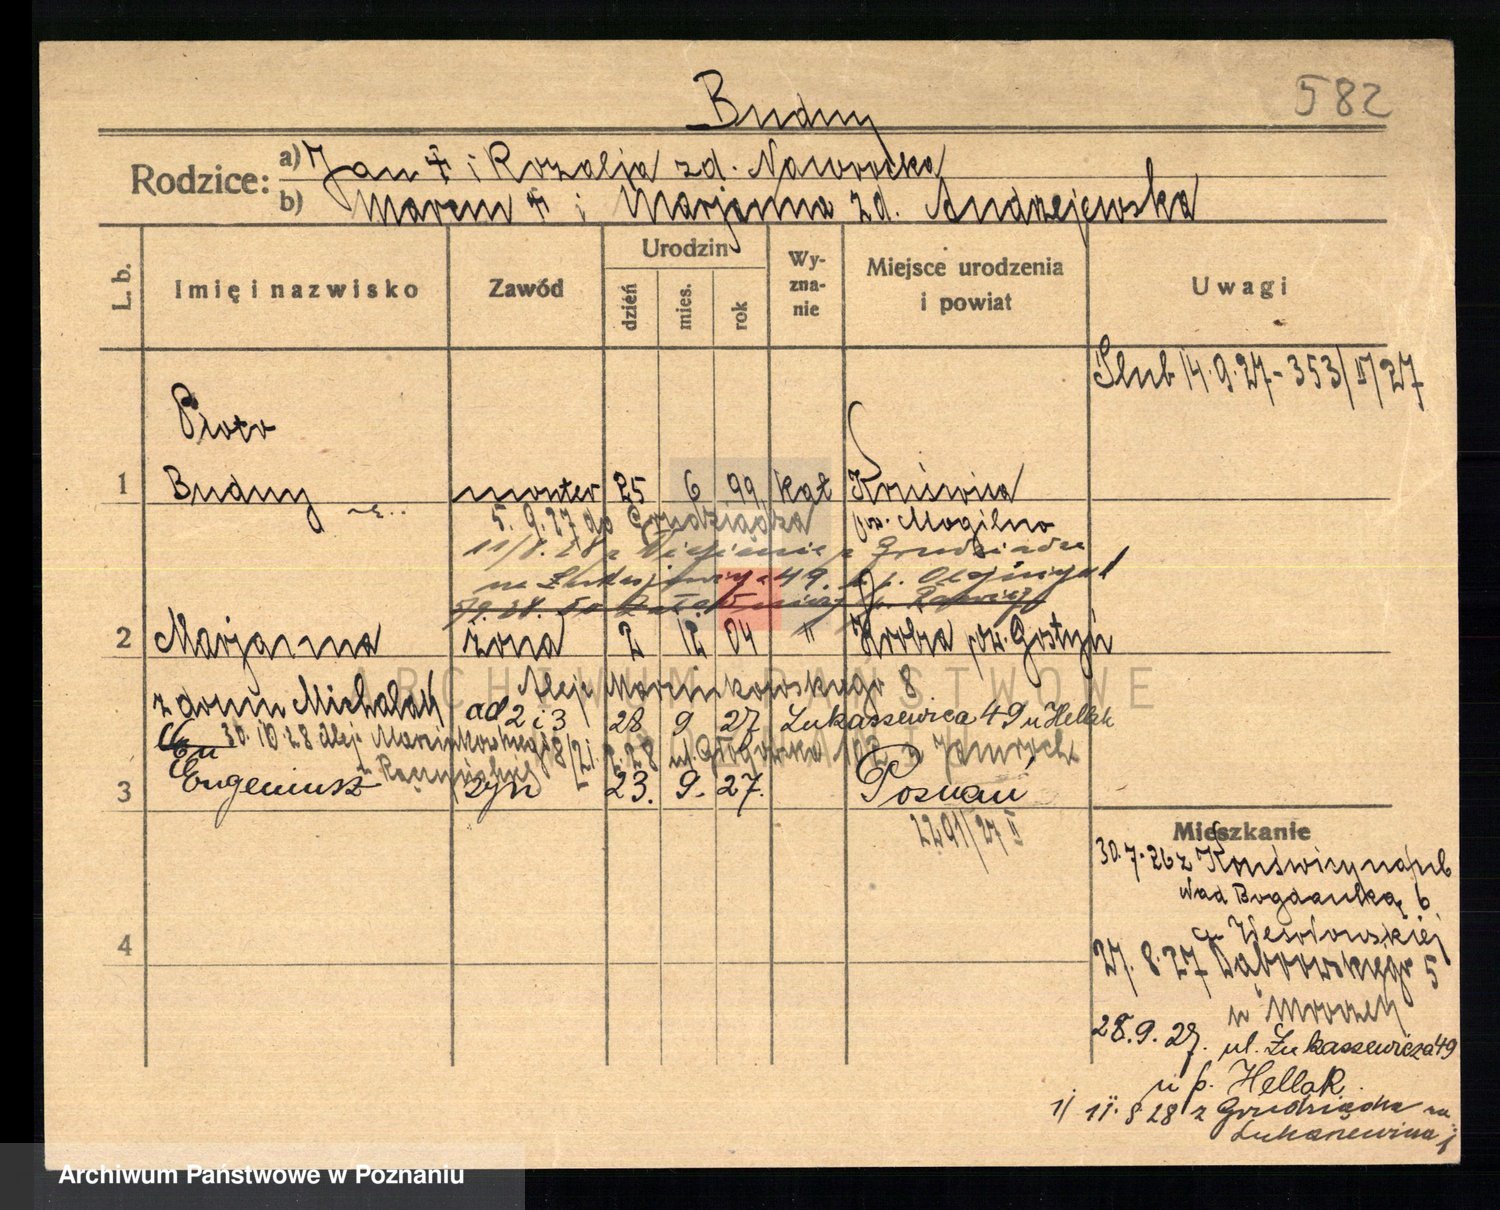 582
Budny
Rodzice: a) Jan † i Rozalja zd. Nawrocka
b) Marcin † i Marjanna zd. Andrzejewska
L. b.
Imię i nazwisko
Zawód
Urodzin
dzień
mies.
rok
Wy-
zna-
nie
Miejsce urodzenia
i powiat
Uwagi
Ślub 14.9.27 - 353/II/27
Piotr
1 Budny monter 25 6 99 kat Kruświca
5. 9. 27 do Grudziądza pow. Mogilno
11/8. 28 z Grudziądza
2 Marjanna żona 2 12 04 " Krobia pow. Gostyń
z domu Michalak
Aleje Marcinkowskiego 8
ad 2 i 3 28 9 27 Łukaszewicza 49 u Hellak
30. 10 28 Aleje Marcinkowskiego 8/
ul. Głogowska 102
3 Eugeniusz syn 23. 9. 27. Poznań
2291/27 II
4
Mieszkanie
30.7.26 z Kruświcy na ul
Nad Bogdanką 6
u Wesołowskiej
27. 8. 27 Dąbrowskiego 5
u Mroczek
28.9.27. ul. Łukaszewicza 49
u p. Hellak.
11. 8 28 z Grudziądza na
Łukaszewicza
ARCHIWUM PAŃSTWOWE
W POZNANIU
Archiwum Państwowe w Poznaniu